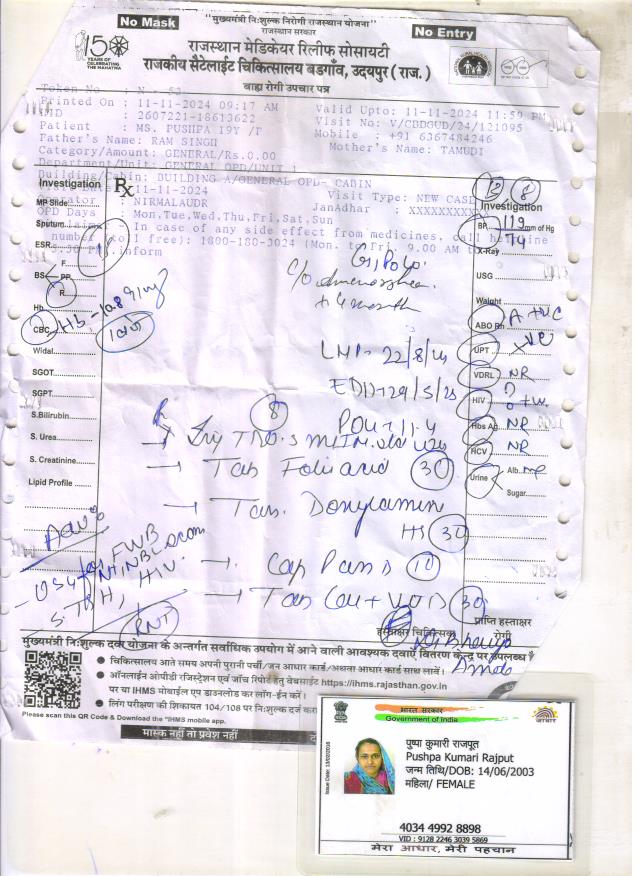 No Mask
"मुख्यमंत्री निःशुल्क निरोगी राजस्थान योजना"
राजस्थान सरकार
No Entry
150
YEARS OF
CELEBRATING
THE MAHATMA
राजस्थान मेडिकेयर रिलीफ सोसायटी
राजकीय सैटेलाईट चिकित्सालय बडगाँव, उदयपुर (राज.)
बाह्य रोगी उपचार पत्र
Token No : N - 53
Printed On : 11-11-2024 09:17 AM
Valid Upto: 11-11-2024 11:59 PM
2607221-18613622
Visit No: V/CBDGUD/24/121095
Patient : MS. PUSHPA 19Y /F
Mobile : +91 6367484246
Father's Name: RAM SINGH
Mother's Name: TAMUDI
Category/Amount: GENERAL/Rs.0.00
Department/Unit: GENERAL OPD/UNIT 1
Building/Cabin: BUILDING A/GENERAL OPD- CABIN
11-11-2024
Visit Type: NEW CASE
: NIRMALAUDR
JanAdhar : XXXXXXXXX
OPD Days : Mon,Tue,Wed,Thu,Fri,Sat,Sun
- In case of any side effect from medicines, call helpline
number (toll free): 1800-180-3024 (Mon. to Fri. 9.00 AM to
inform
Investigation
Rx
MP Slide
Sputum
ESR
F
BS PP
R
Hb
CBC Hb.-10.8
Widal
SGOT
SGPT
S.Bilirubin
S. Urea
S. Creatinine
Lipid Profile
Investigation
BP 119 mm of Hg
74
X-Ray
USG
Weight
ABO Rh A +ve
UPT +ve
VDRL NR
HIV
Hbs Ag NR
HCV NR
Urine Alb.
Sugar
c/o amenorrhea
LMP- 22/8/24
EDD-29/5/25
8
→ Tab Folic acid 30
→ Tab. Doxylamin
HS 30
→ Cap Pan D 10
→ Tab Cal + Vit D 30
Adv
- USG for FWB
NT/NBL scan
S. TSH, HIV
RNT
हस्ताक्षर चिकित्सक
प्राप्ति हस्ताक्षर
रोगी
मुख्यमंत्री निःशुल्क दवा योजना के अन्तर्गत सर्वाधिक उपयोग में आने वाली आवश्यक दवाएं वितरण केन्द्र पर उपलब्ध
चिकित्सालय आते समय अपनी पुरानी पर्ची/जन आधार कार्ड/अथवा आधार कार्ड साथ लावें।
ऑनलाईन ओपीडी रजिस्ट्रेशन एवं जाँच रिपोर्ट हेतु वेबसाईट https://ihms.rajasthan.gov.in
पर या IHMS मोबाईल एप डाउनलोड कर लॉग-ईन करें।
लिंग परीक्षण की शिकायत 104/108 पर निःशुल्क दर्ज करा
Please scan this QR Code & Download the "IHMS mobile app.
मास्क नहीं तो प्रवेश नहीं
भारत सरकार
Government of India
आधार
Issue Date: 13/02/2016
पुष्पा कुमारी राजपूत
Pushpa Kumari Rajput
जन्म तिथि/DOB: 14/06/2003
महिला/ FEMALE
4034 4992 8898
VID : 9128 2246 3039 5869
मेरा आधार, मेरी पहचान